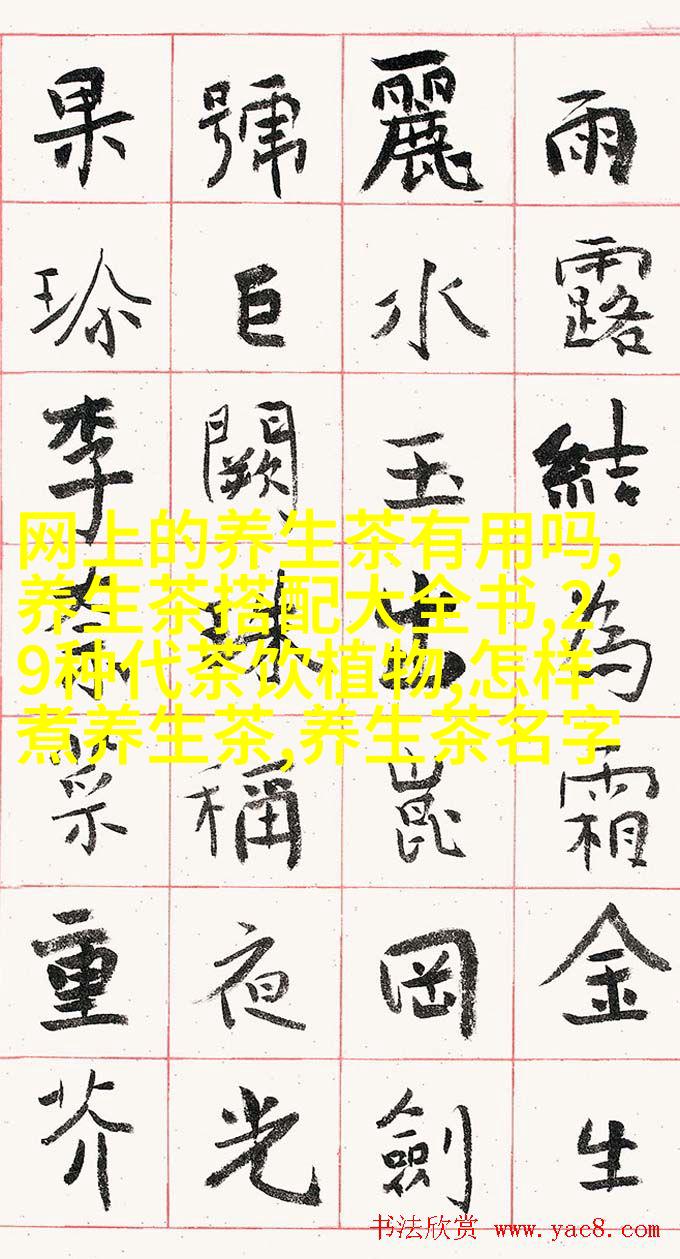 雨露結為霜金生
麗水玉出崑岡劍
號巨闕珠稱夜光
果珎李柰菜重芥
网上的养生茶有用吗,
养生茶搭配大全书,2
9种代茶饮植物,怎样
煮养生茶,养生茶名字
书法欣赏 www.yac8.com